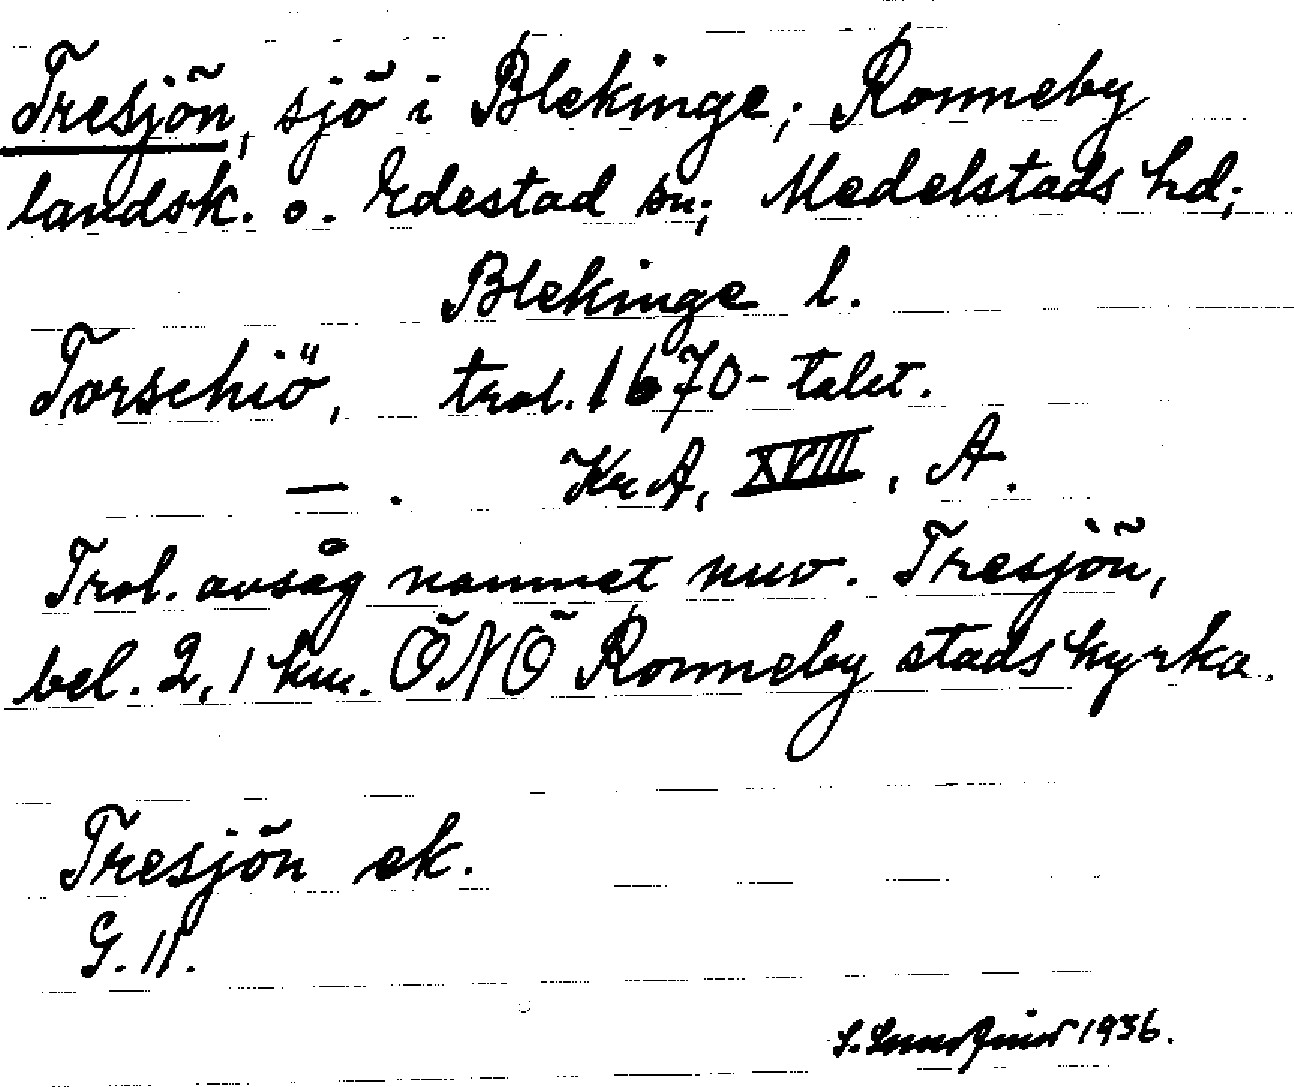 Tresjön, sjö i Blekinge; Ronneby
landsk. o. Edestad sn; Medelstads hd;
Blekinge l.
Torschiö, trol. 1670-talet.
— . KrA, XVIII, A.
Trol. avsåg namnet nuv. Tresjön,
bel. 2,1 km. ÖNÖ Ronneby stads kyrka.
Tresjön ek.
G. 11.
1936.